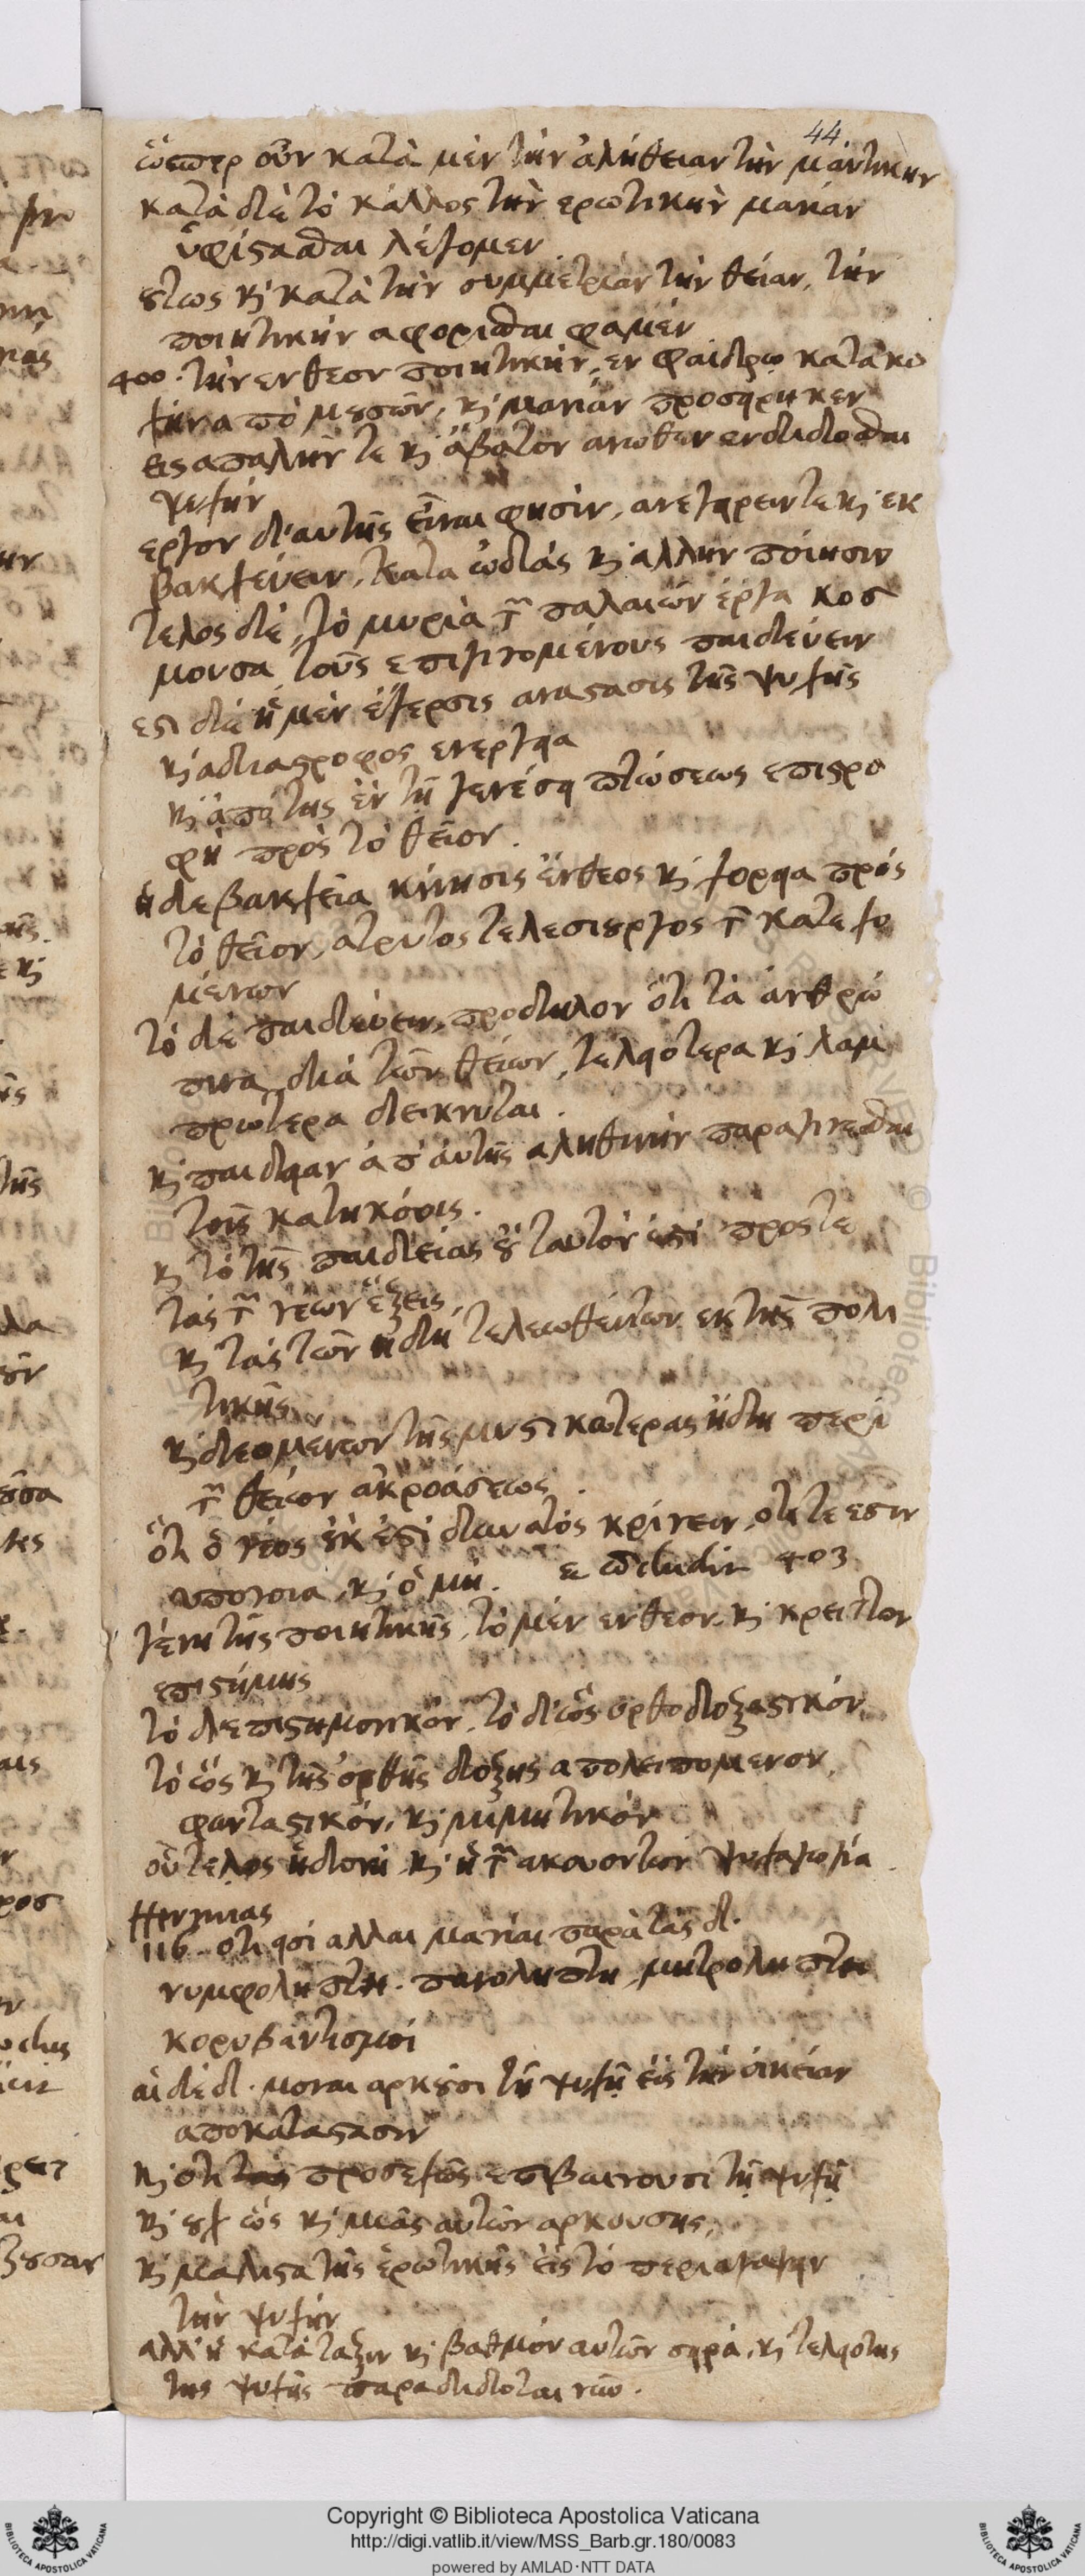 44
ὥσπερ οὖν κατὰ μὲν τὴν ἀλήθειαν τὴν μαντικὴν
κατὰ δὲ τὸ κάλλος τὴν ερωτικὴν μανίαν
ὑφίστασθαι λέγομεν
οὕτως καὶ κατὰ τὴν συμμετρίαν τὴν θείαν, τὴν
ποιητικὴν αφορισθαι φαμὲν
400. τὴν ενθεον ποιητικὴν, εν φαίδρῳ κατακω
χὴν απὸ μουσῶν, καὶ μανίαν προσείρηκεν
εις απαλὴν τε καὶ ἄβατον ανωθεν ενδιδοσθαι
ψυχήν
εργον δ' αυτῆς εἶναι φησὶν, ανεγείρειν τε καὶ εκ
βακχεύειν, κατα ὠδὰς καὶ αλλην ποίησιν
τελος δὲ, τὸ μυρία τῶν παλαιῶν έργα κοσ
μουσα τοὺς επιγινομένους παιδεύειν
εστι δὲ ἡ μὲν έγερσις αναστασις τῆς ψυχῆς
καὶ αδιαστροφος ενεργεια
καὶ ἀπὸ της ἐν τῇ γενέσει πτώσεως επιστρο
φὴ πρὸς τὸ θεῖον.
ἡ δε βακχεία κίνησις ἔνθεος καὶ χορεια πρὸς
τὸ θεῖον, ατρυτος τελεσιουργος τῶν κατεχο
μένων
τὸ δὲ παιδεύειν, προδηλον ὅτι τὰ ἀνθρώ
πινα διὰ τῶν θείων, τελειότερα καὶ λαμ
πρώτερα δεικνυται.
καὶ παιδειαν ἀπ' ἀυτῆς αληθινὴν παραγινεσθαι
τοῖς κατηκόοις.
καὶ τὸ τῆς παιδείας οὐ ταυτόν ἐστὶ προς τε
τὰς τῶν νέων ἕξεις,
καὶ τὰς τῶν ἤδη τελεωθέντων εκ τῆς πολι
τικῆς
καὶ δεομενων τῆς μυστικωτερας ἤδη περὶ
τῶν θείων ακροάσεως.
ὅτι ὁ νέος οὐκ ἐστὶ δυνατός κρίνειν, οτι τε εστιν
υπονοια, καὶ ὁ μή. 403
γένη τῆς ποιητικῆς, τὸ μὲν ενθεον, καὶ κρειττον
επιστήμης
τὸ δ' επιστημονικόν, τὸ δ' ὡς ορθοδοξαστικόν,
τὸ ὡς καὶ τῆς ὀρθῆς δόξης απολειπομενον,
φανταστικόν, καὶ μιμητικόν
οὗ τελος ἡδονὴ καὶ ἡ τῶν ακουοντων ψυχαγωγία.
Hermias
116. οτι εισί αλλαι μανίαι παρὰ τὰς δ.
νυμφοληπται. πανοληπται, μητροληπται
κορυβαντισμοί
αἱ δὲ δ. μοναι αρκοῦσι τῇ ψυχῇ εἰς τὴν οικείαν
αποκαταστασιν
καὶ οτι προσεχῶς επιβαινουσι τῇ ψυχῇ
καὶ οὐχ ὡς καὶ μιᾶς αυτῶν αρκουσης,
καὶ μαλιστα τῆς ἐρωτικῆς εἰς τὸ περιαγαγειν
τὴν ψυχήν
αλλ' ᾗ κατὰ ταξιν καὶ βαθμόν αυτῶν σειρὰ, καὶ τελειοτης
της ψυχῆς παραδιδοται νῦν.
Copyright © Biblioteca Apostolica Vaticana
http://digi.vatlib.it/view/MSS_Barb.gr.180/0083
powered by AMLAD·NTT DATA